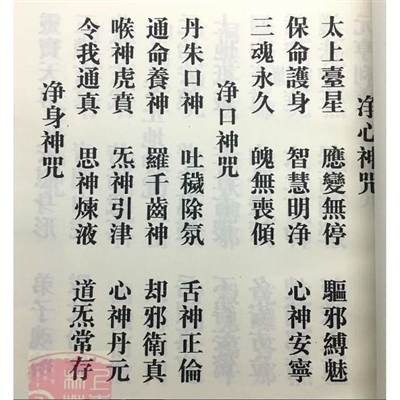 净心神咒
太上臺星 應變無停 驅邪縛魅
保命護身 智慧明净 心神安寧
三魂永久 魄無喪傾
净口神咒
丹朱口神 吐穢除氛 舌神正倫
通命養神 羅千齒神 却邪衛真
喉神虎賁 炁神引津 心神丹元
令我通真 思神煉液 道炁常存
净身神咒